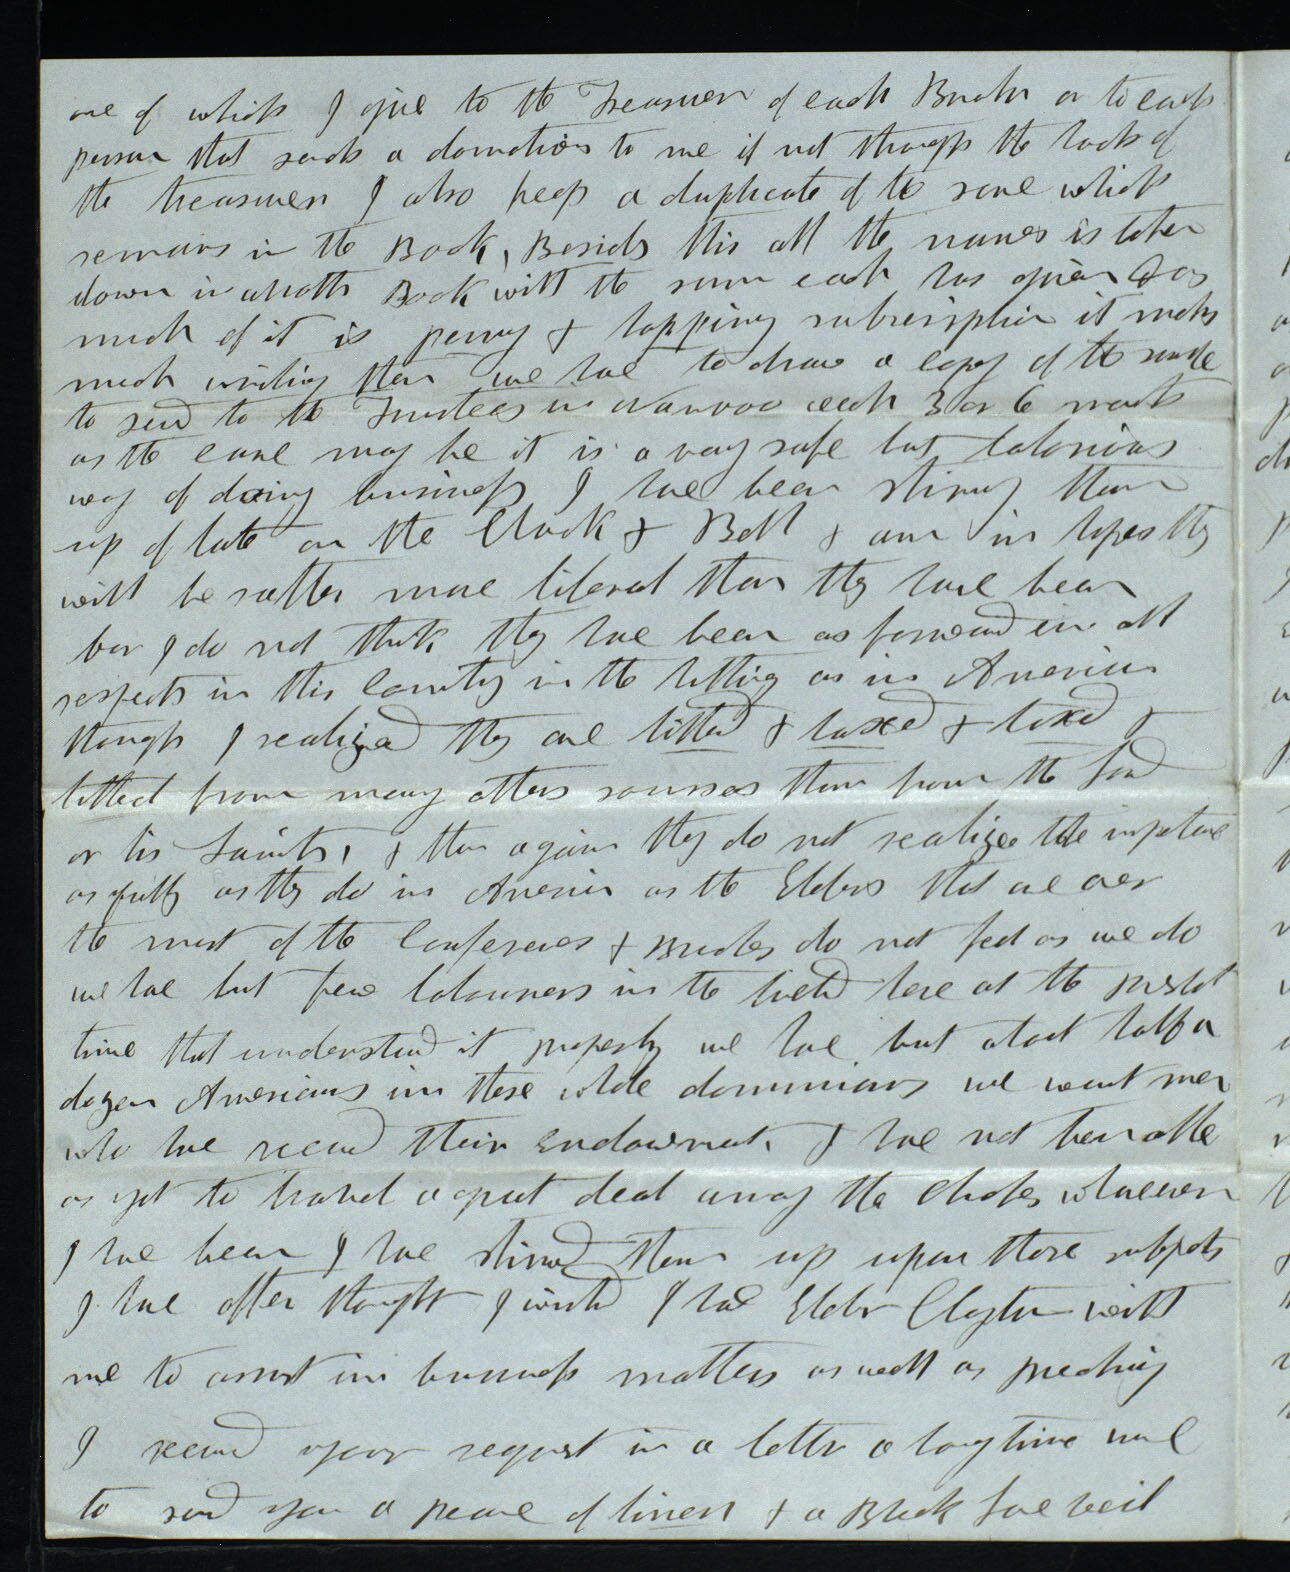 one of which I give to the Treasurer of each Branch or to each
person that sends a donation to me if not through the hands of
the treasurer I also keep a duplicate of the same which
remains in the Book, Besids this all the names is taken
down in another Book with the sum each has given & as
much of it is penny & happiny subscription it makes
much writing then we have to draw a copy of the whole
to send to the Trustees in Nauvoo each 3 or 6 months
as the case may be it is a vary safe but laborious
way of doing business I have been stiring them
up of late on the Clock & Bell & am in hopes they
will be rather more liberal than they have been
bu I do not think they have been as forward in all
respects in this Country in the tithing as in America
though I realized they are tithed & taxed & taxed &
tithed from many others sourses than from the Lord
or his Saints, & then again they do not realize the importance
as fully as they do in America as the Elders that are over
the most of the Conferences & Branches do not feel as we do
we have but few labourers in the field here at the present
time that understand it properly we have but about half a
dozen Americans in these whole dominions we want men
who have received their Endowment, I have not been able
as yet to travel a great deal among the Churches whareever
I have been I have stired them up upon those subjects
I have often thought I wished I had Elder Clayton with
me to assist in business matters as well as preaching
I received your request in a letter a long time since
to send you a peace of linen & a Black lace veil